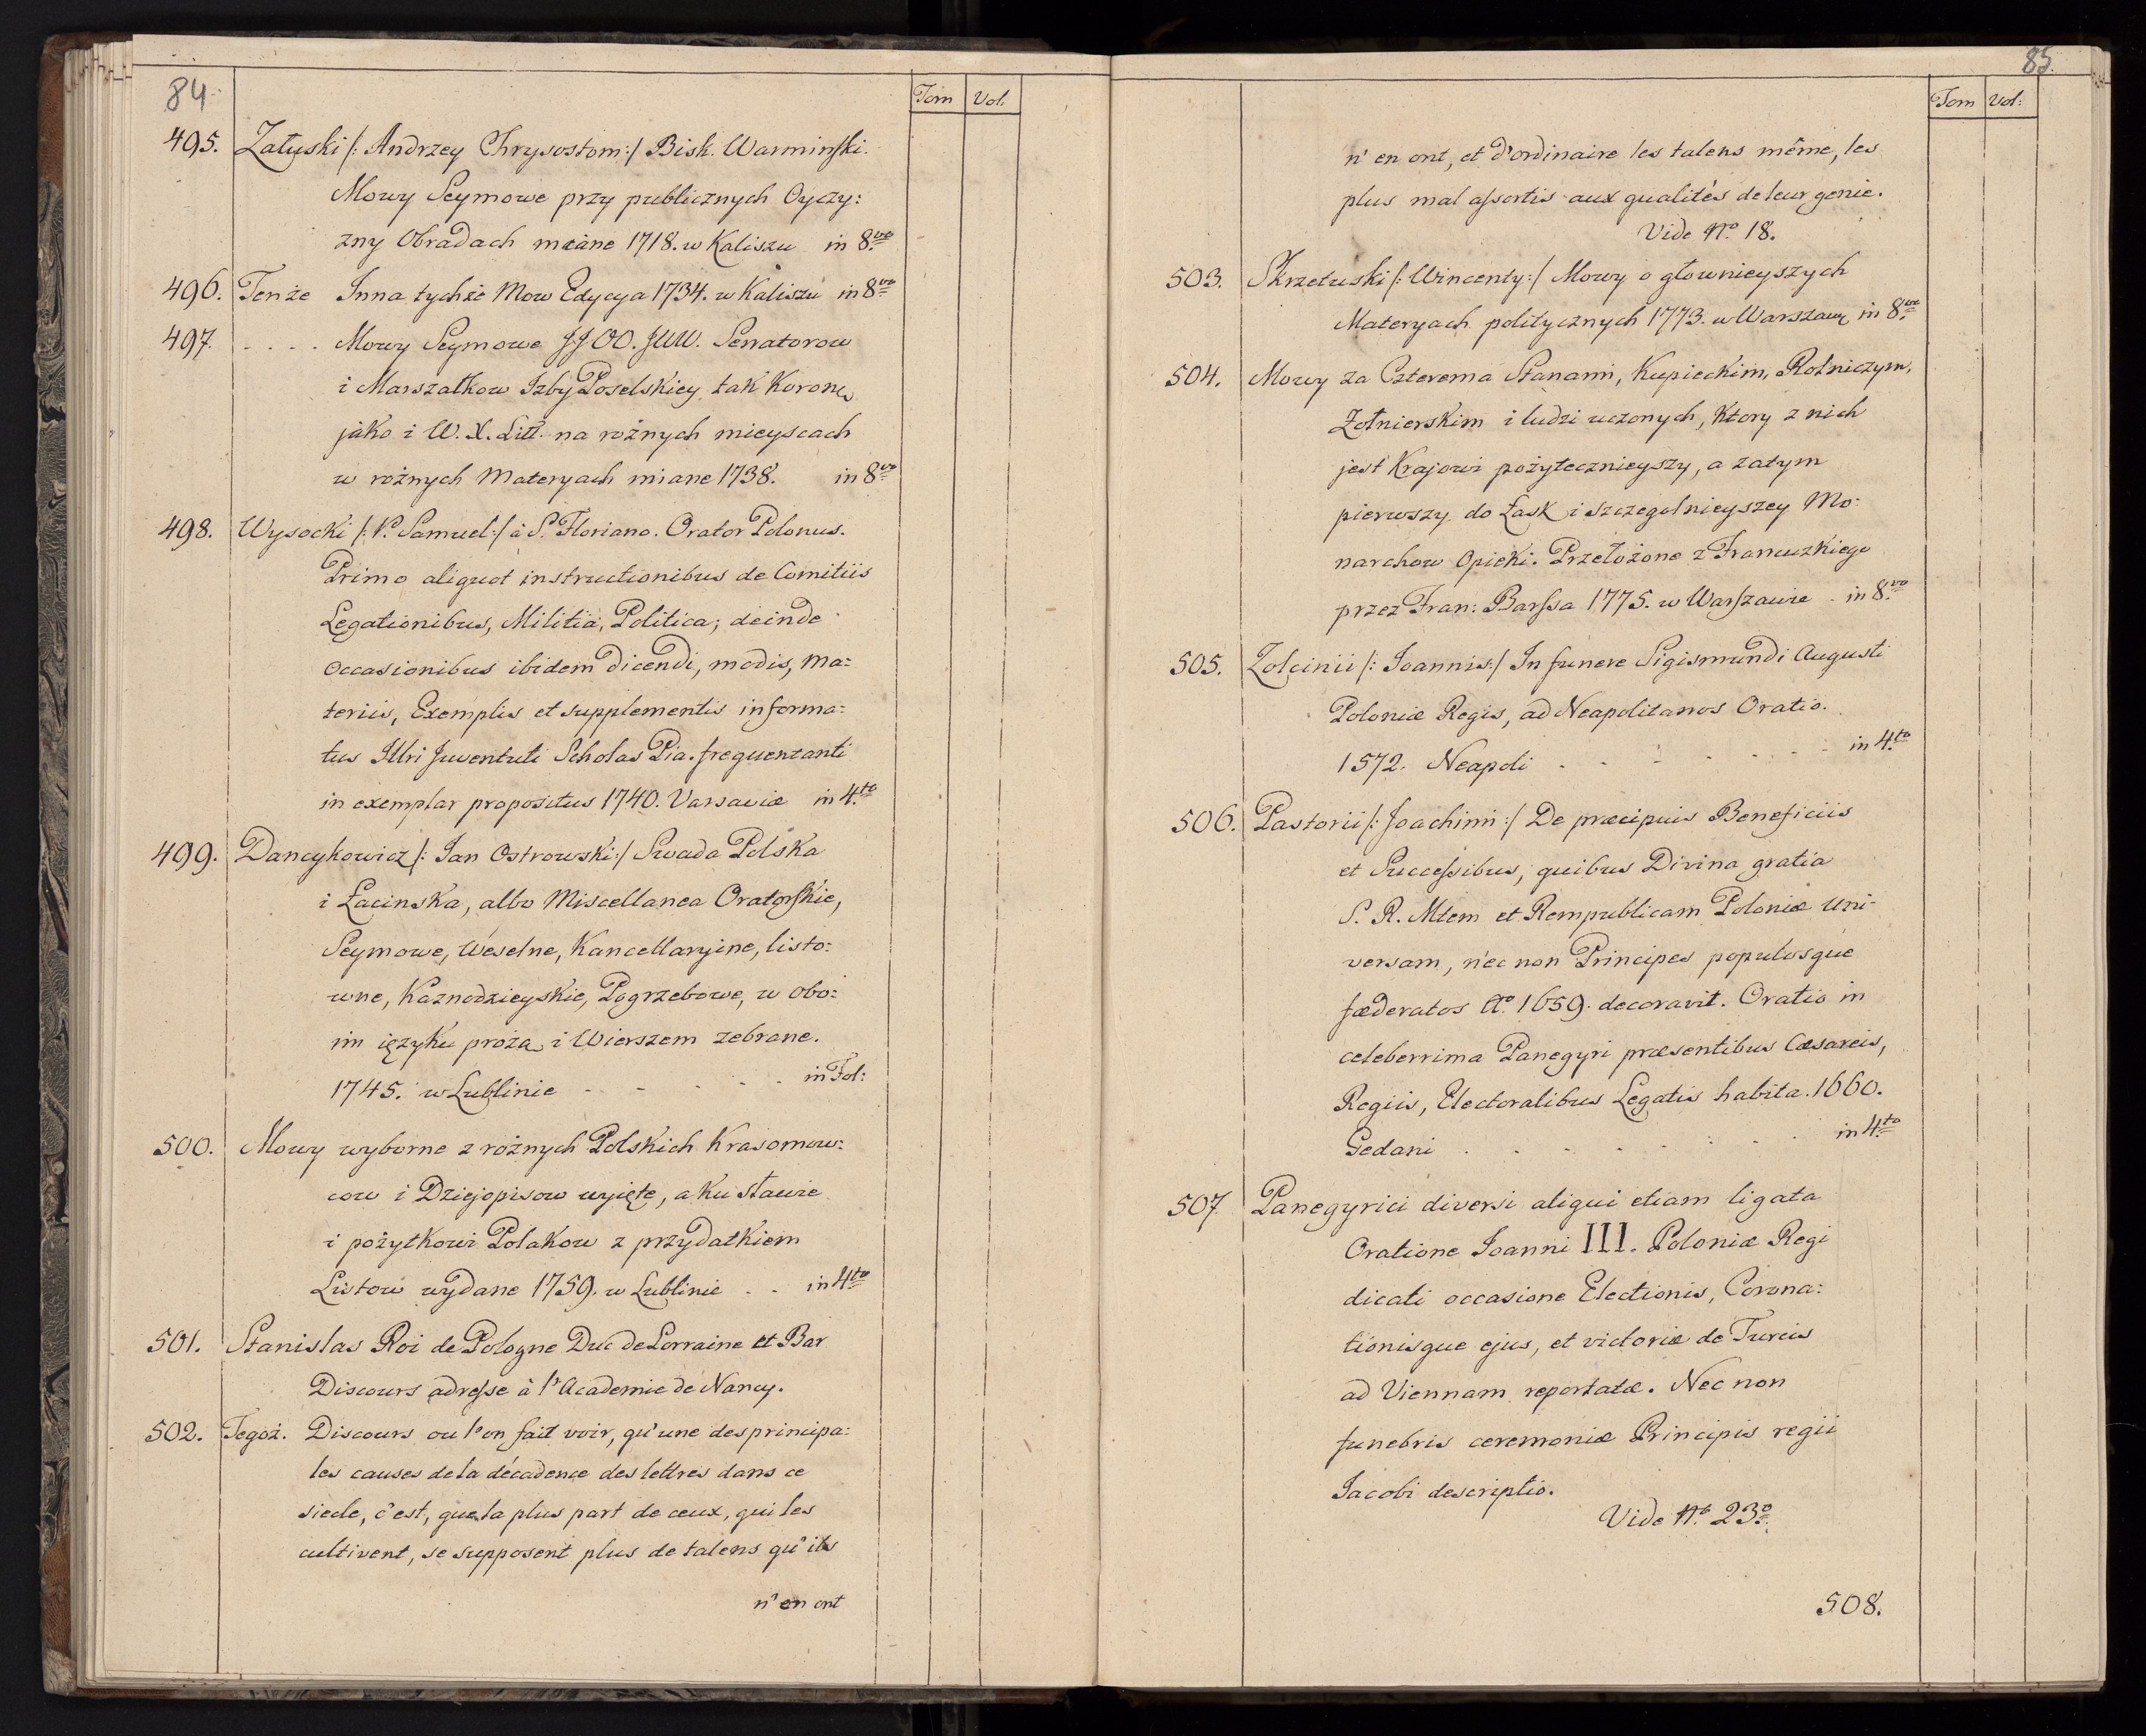 84
Tom Vol:
495. Załuski /: Andrzey Chrysostom :/ Bisk. Warminski.
Mowy Seymowe przy publicznych Oyczy:
zny Obradach miane 1718. w Kaliszu in 8vo
496. Tenże Inna tychże Mow Edycya 1734. w Kaliszu in 8vo
497. . . . . Mowy Seymowe JJ OO. JWW. Senatorow
i Marszałkow Izby Poselskiey tak Korone
jako i W. X. Litt. na rożnych mieyscach
w rożnych Materyach miane 1738. in 8vo
498. Wysocki /: P. Samuel :/ à S. Floriano. Orator Polonus.
Primo aliquot instructionibus de Comitiis
Legationibus, Militia, Politica; deinde
occasionibus ibidem dicendi, modis, ma:
teriis, Exemplis et supplementis informa:
tus Illri Juventuti Scholas Pia. frequentanti
in exemplar propositus 1740. Varsaviæ in 4to
499. Dancykowicz /: Jan Ostrowski :/ Swada Polska
i Łacinska, albo Miscellanea Oratorskie,
Seymowe, Weselne, Kancellaryine, listo:
wne, Kaznodzieyskie, Pogrzebowe, w obo:
im ięzyku prożą i Wierszem zebrane.
1745. w Lublinie - - - - - in Fol:
500. Mowy wyborne z rożnych Polskich Krasomow:
cow i Dziejopisow wyięte, a ku sławie
i pożytkowi Polakow z przydatkiem
Listow wydane 1759. w Lublinie . . in 4to
501. Stanislas Roi de Pologne Duc de Lorraine et Bar
Discours adresse à l'Academie de Nancy.
502. Tegoż. Discours ou l'on fait voir, qu'une des principa:
les causes de la décadence des lettres dans ce
siecle, c'est, que la plus part de ceux, qui les
cultivent, se supposent plus de talens qu'ils
n'en ont
85.
Tom Vol:
n'en ont, et d'ordinaire les talens même, les
plus mal assortis aux qualités de leur genie.
Vide No. 18.
503. Skrzetuski /: Wincenty :/ Mowy o głownieyszych
Materyach politycznych 1773. w Warszawie in 8vo
504. Mowy za Czterema Stanami, Kupieckim, Rolniczym,
Żołnierskim i ludzi uczonych, Ktory z nich
jest Krajowi pożytecznieyszy, a zatym
pierwszy do Łask i szczegulnieyszey Mo:
narchow Opieki. Przełożone z Francuzkiego
przez Fran: Barssa 1775. w Warszawie - in 8vo
505. Zolcinii /: Joannis :/ In funere Sigismundi Augusti
Poloniæ Regis, ad Neapolitanos Oratio.
1572. Neapoli - - - - - - in 4to
506. Pastorii /: Joachimi :/ De præcipuis Beneficiis
et Successibus, quibus Divina gratia
S. R. Mtem et Rempublicam Poloniæ uni-
versam, nec non Principes populosque
fœderatos Ao. 1659. decoravit. Oratio in
celeberrima Panegyri præsentibus Cæsareis,
Regiis, Electoralibus Legatis habita. 1660.
Gedani . . . . . . . in 4to
507. Panegyrici diversi aliqui etiam ligata
Oratione Joanni III. Poloniæ Regi
dicati occasione Electionis, Corona:
tionisque ejus, et victoriæ de Turcis
ad Viennam reportatæ. Nec non
funebris ceremoniæ Principis regii
Jacobi descriptio.
Vide No. 23o.
508.